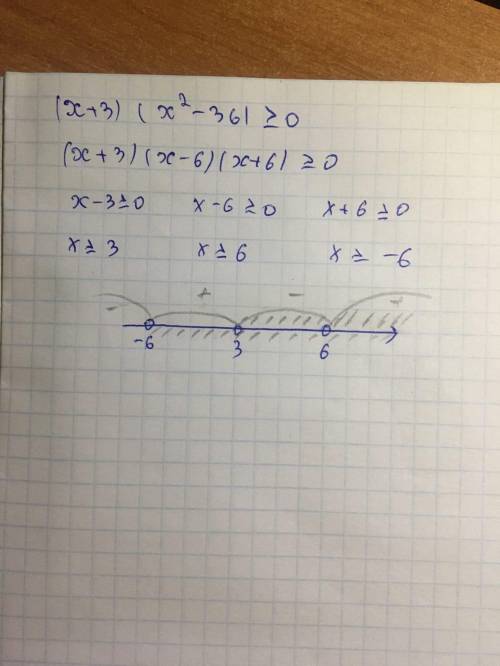 (x+3) (x²-36) ≥ 0
(x+3) (x-6) (x+6) ≥ 0
x-3≥0 x-6≥0 x+6≥0
x≥3 x≥6 x≥ -6
- + - +
-6 3 6